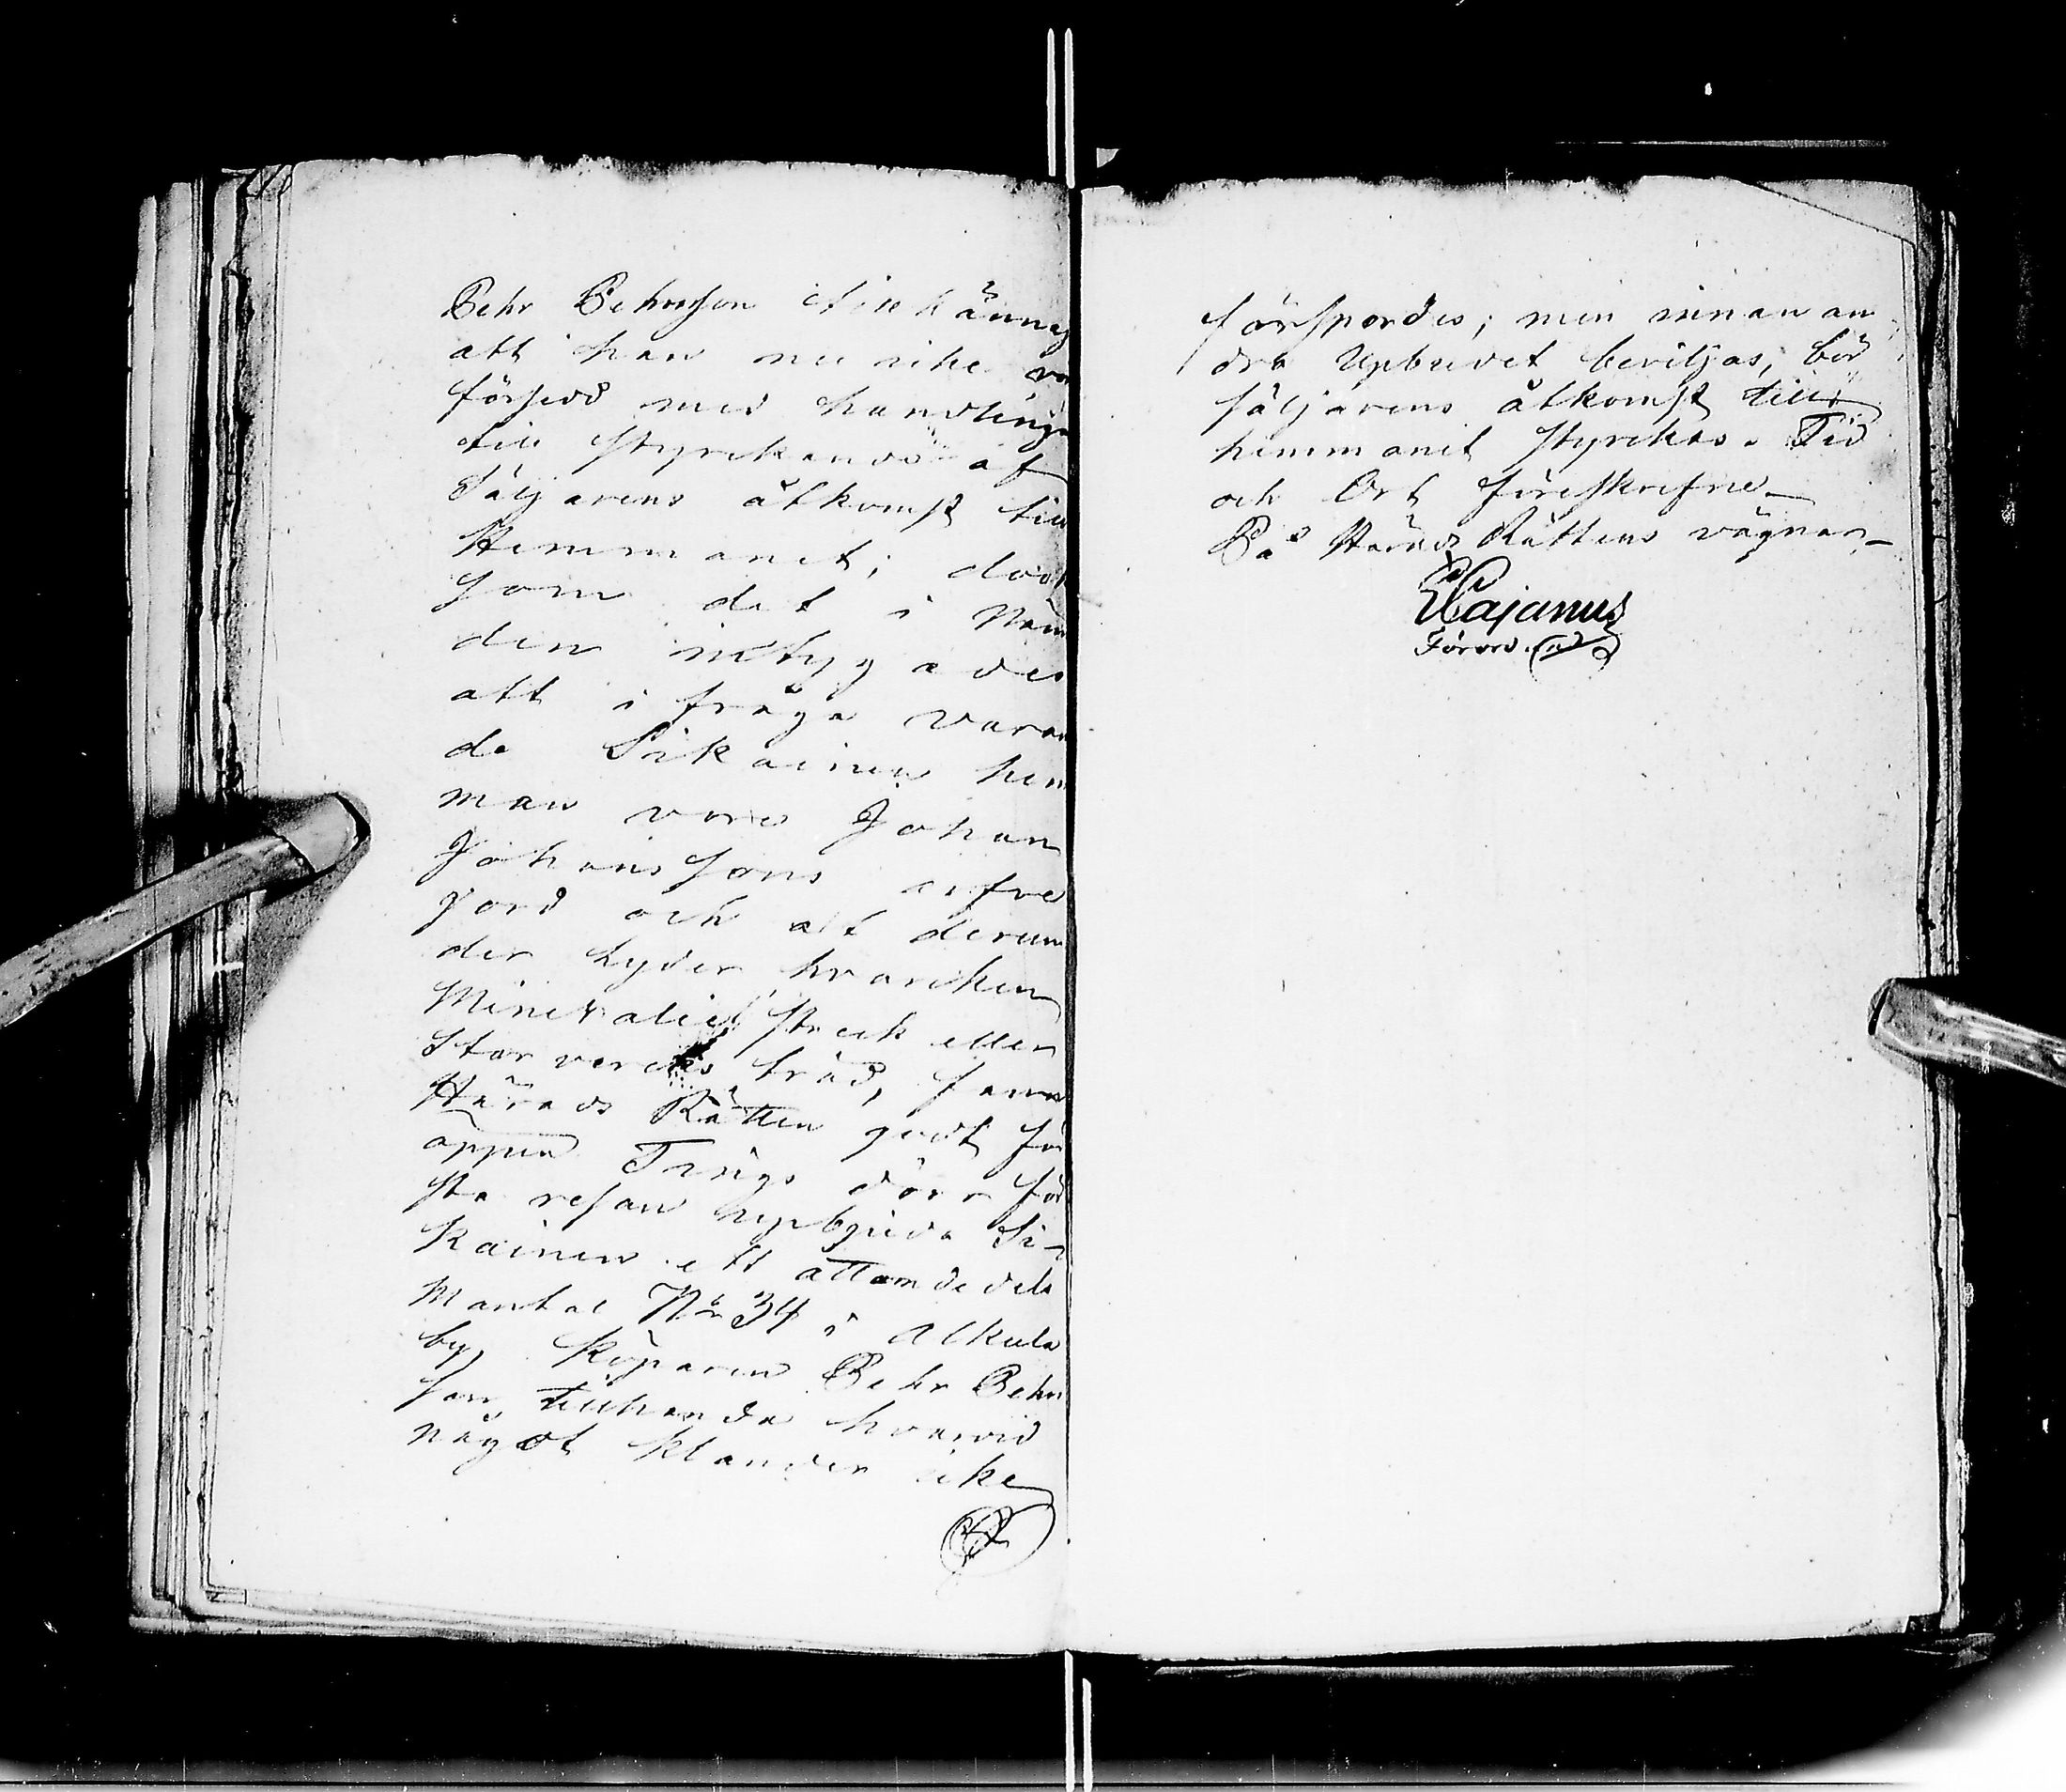 Pehr Pehrsson tillkänna
att han nu icke va
försedd med handlinga
till styrckande af
Säljarens åtkomst till
Hemmanet; dock
som det i Näm
den intygades
att i fråga varan
de Sikainen hem
man vore Johan
Johanssons arfve
jord och att derun
der lyder hvarcken
Mineralie streck eller
Storvercks träd, fann
Härads Rätten godt för
öppen Tings dörr för
sta resan upbjuda Si-
kainen ett åttondedels
Mantal No 34 i Alkula
by, Köparen Pehr Pehrs
son tillhanda hvarvid
något klander icke
förspordes; men innan an
dra Upbudet beviljas, bör
säljarens åtkomst till
hemmanet styrckas. Tid
och Ort föreskrefne
På Härads Rättens vägnar
Cajanus
Förord.